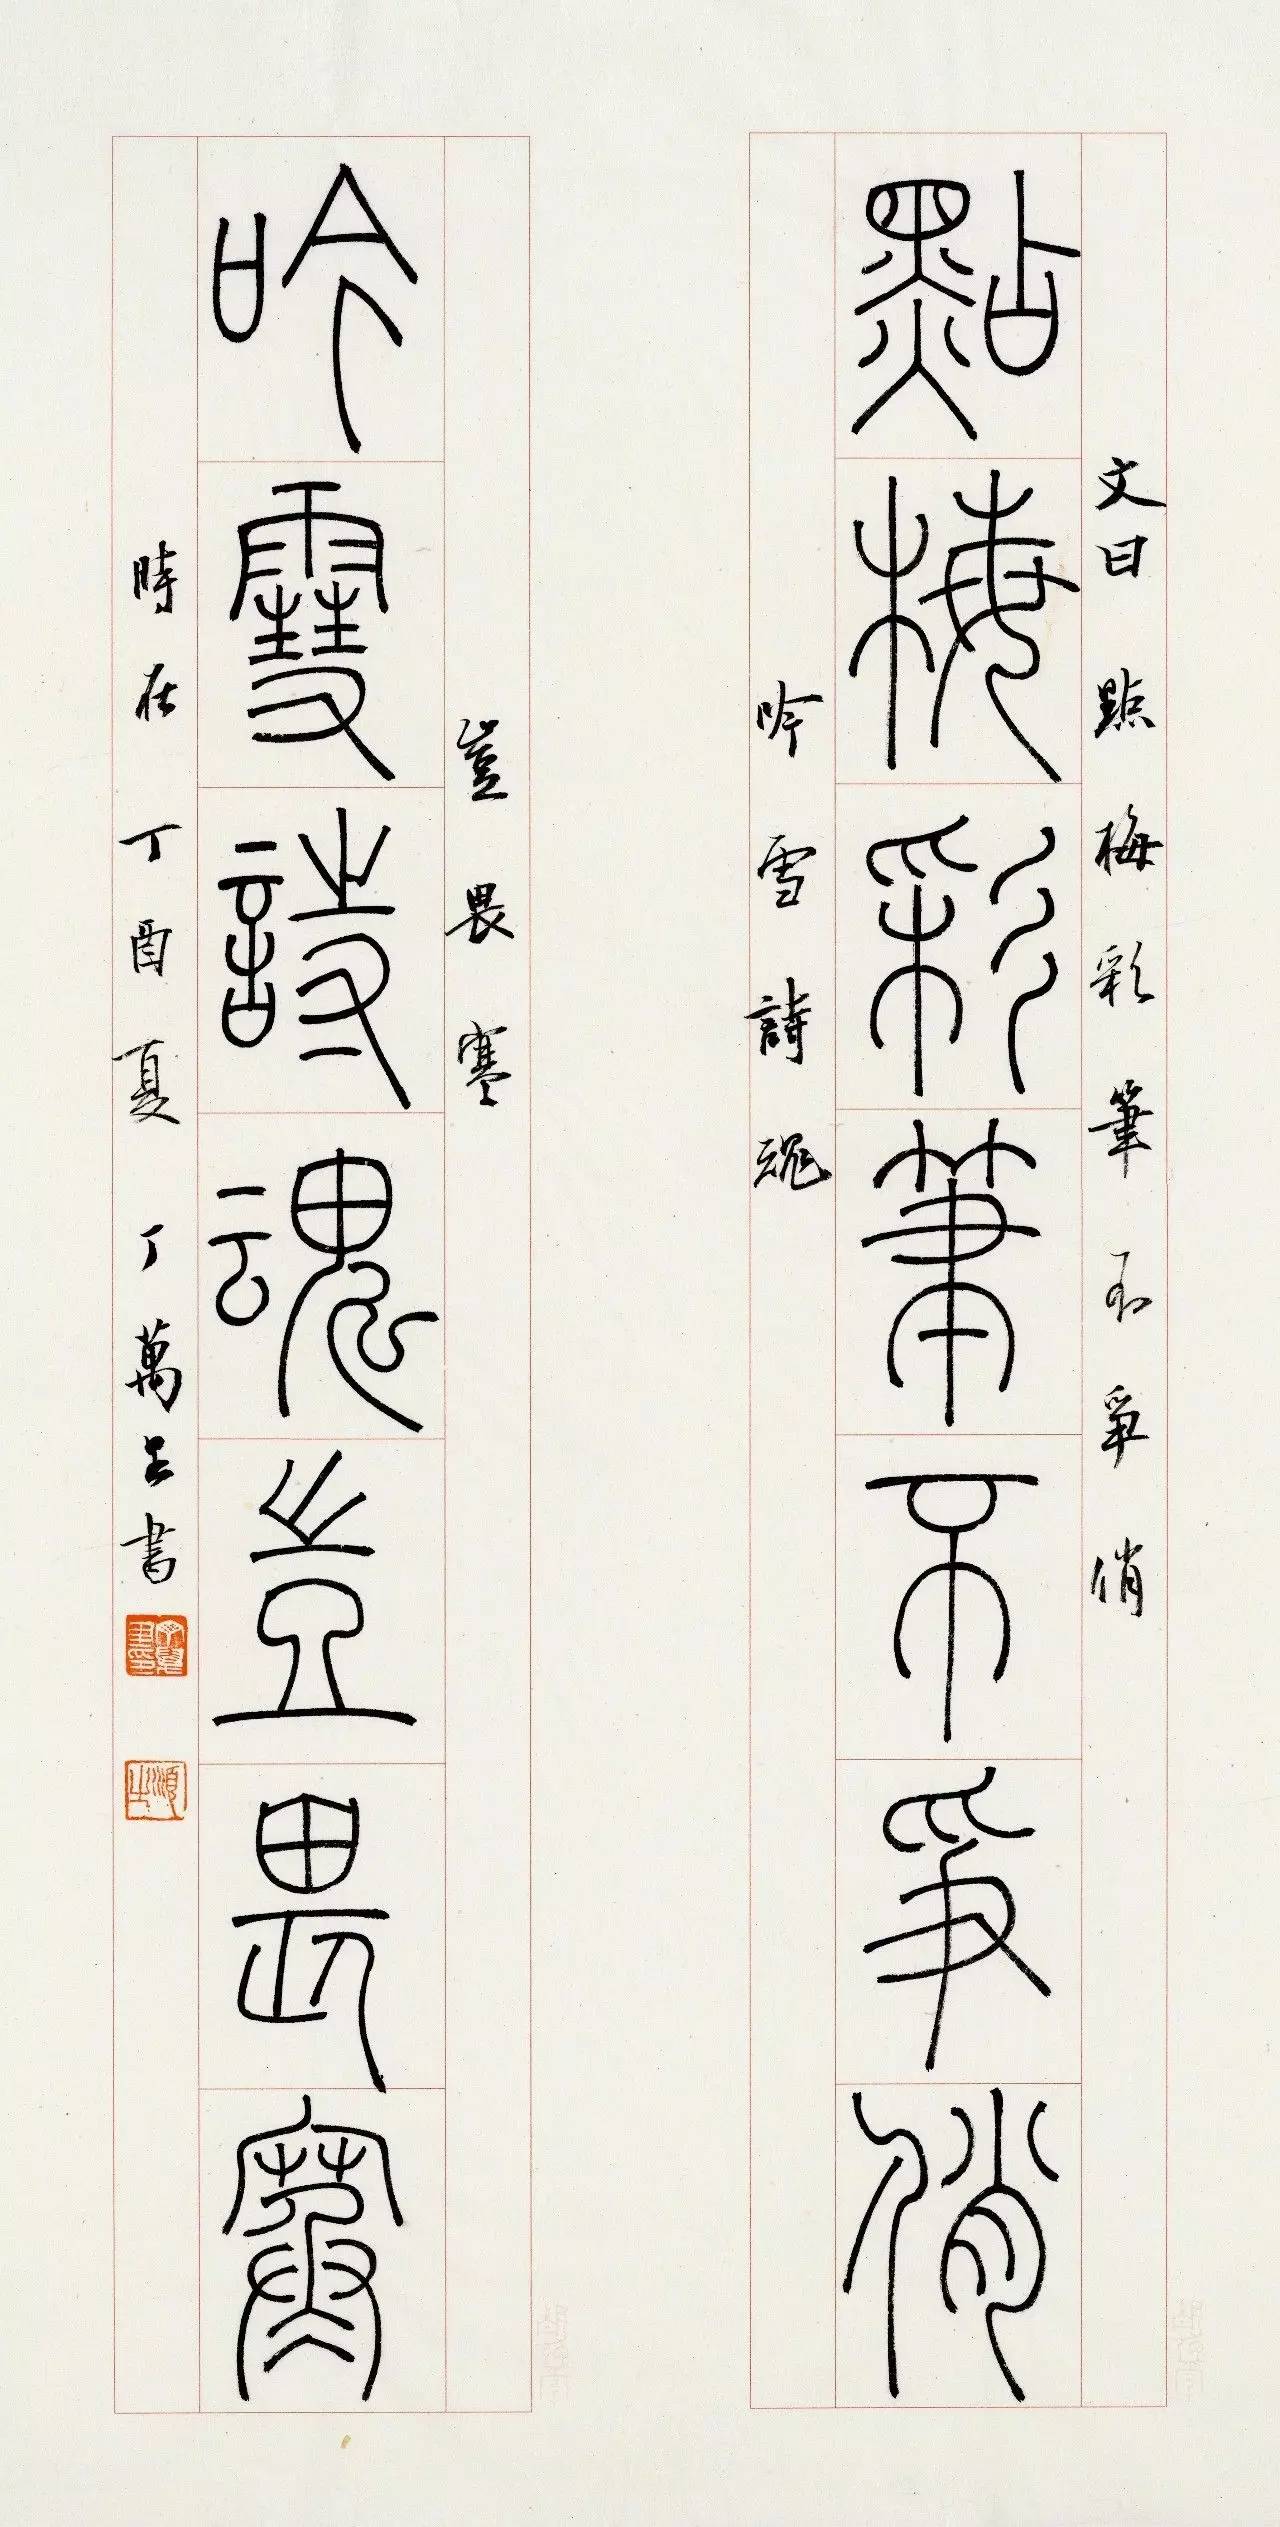 點梅彩筆不爭俏
文曰點梅彩筆不爭俏
吟雪詩魂
吟雪詩魂豈畏寒
豈畏寒
時在丁酉夏丁萬里書